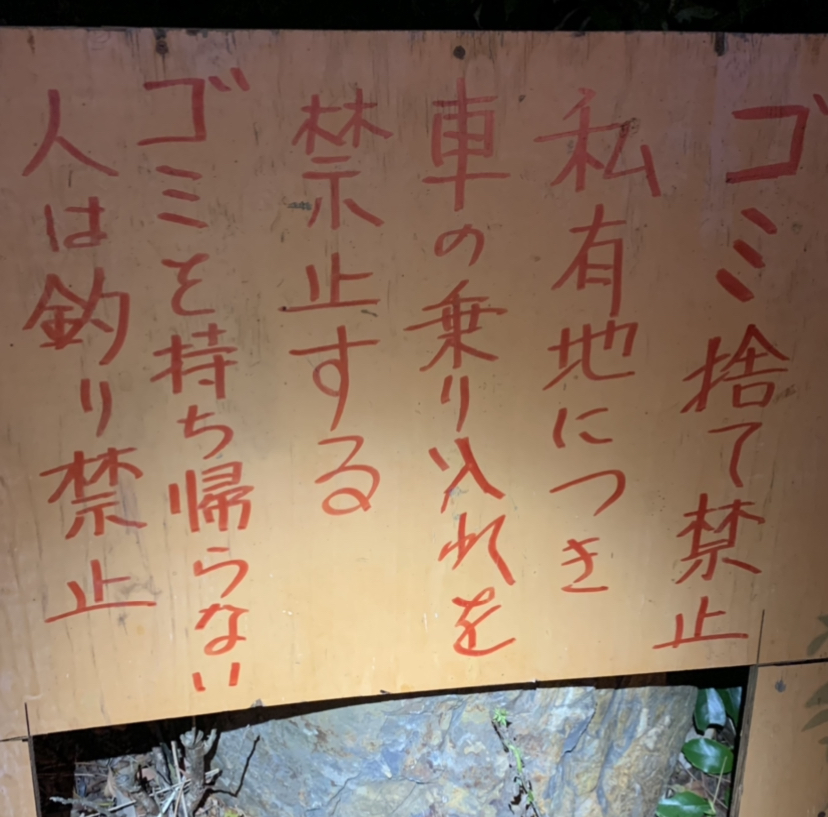 ゴミ捨て禁止
私有地につき
車の乗り入れを
禁止する
ゴミを持ち帰らない
人は釣り禁止